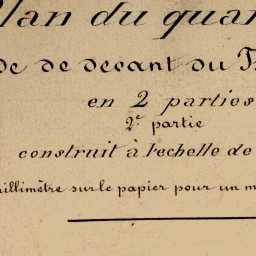 Plan du quar
de de devant du T
en 2 parties
2e partie
construit à l'echelle de
millimètre sur le papier pour un m